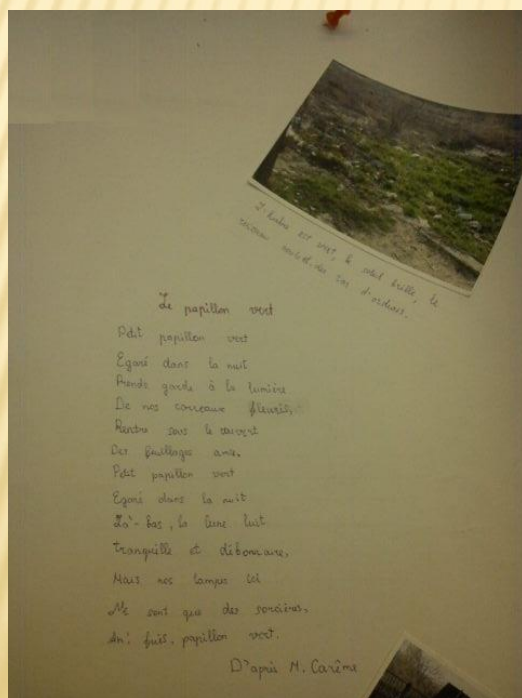 L'herbe est vert, le soleil brille, le
ruisseau des tas d'ordures.
Le papillon vert
Petit papillon vert
Egaré dans la nuit
Prends garde à la lumière
De nos carreaux fleuris,
Rentre sous le couvert
Des feuillages amis,
Petit papillon vert
Egaré dans la nuit
Là-bas, la lune luit
tranquille et débonnaire,
Mais nos lampes ici
Ne sont que des sorcières,
Ah! fuis, papillon vert.
D'après M. Carême